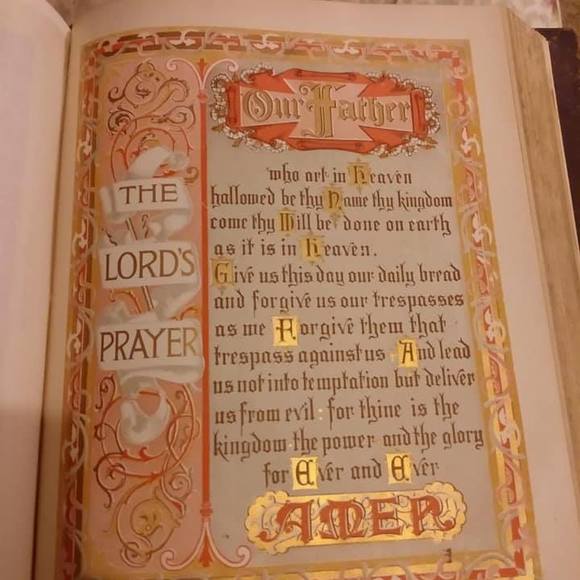 THE
LORD'S
PRAYER
Our Father
who art in Heaven
hallowed be thy Name thy kingdom
come thy Will be done on earth
as it is in Heaven.
Give us this day our daily bread
and forgive us our trespasses
as we Forgive them that
trespass against us And lead
us not into temptation but deliver
us from evil: for thine is the
kingdom the power and the glory
for Ever and Ever
AMEN